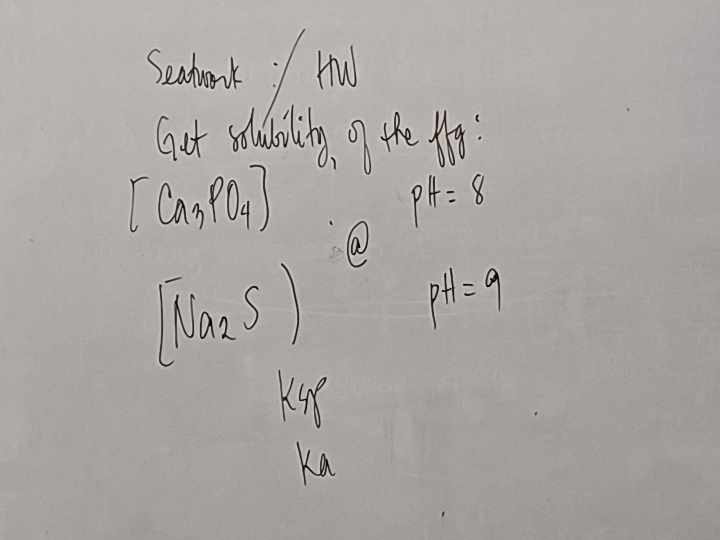 Seatwork :/ HW
Get solubility, of the ffg:
[Ca3PO4] pH = 8
@
[Na2S) pH = 9
Ksp
Ka